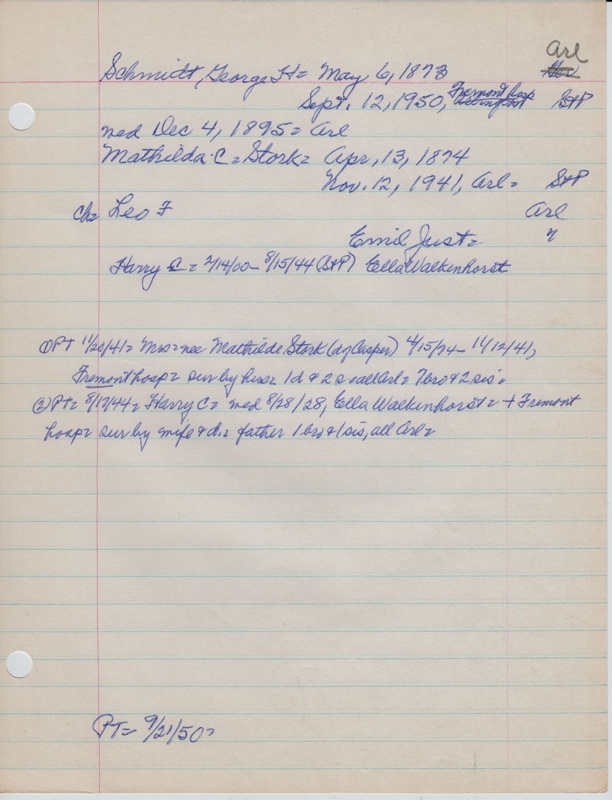 Arl
Schmidt, George H = May 6, 1873
Sept. 12, 1950, Fremont hosp StP
med Dec 4, 1895 = Arl
Mathilda C = Stork = Apr, 13, 1874
Nov. 12, 1941, Arl = StP
ch = Leo F Arl
Emil Just =
Harry C = 2/14/00 - 8/15/44 (StP) Ella Walkenhorst
① PT 11/20/41 = Mrs = nee Mathilde Stork (d of Casper) 4/15/74 - 11/12/41,
Fremont hosp = sur by hus = 1d & 2s = all Arl = 7 bro & 2 sis =
② PT = 8/17/44 = Harry C = med 8/28/28, Ella Walkenhorst = + Fremont
hosp = sur by wife & d. = father 1 bro & 1 sis, all Arl =
PT = 9/21/50 =